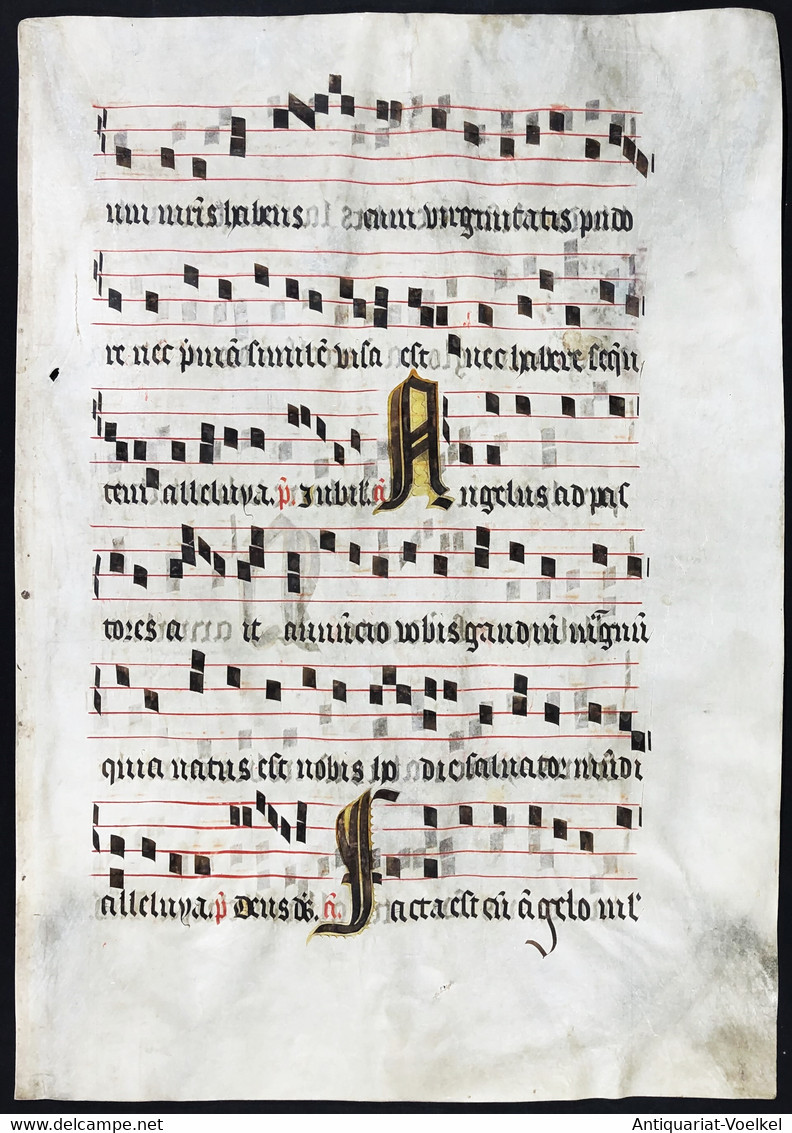 um mr̃is habens cum virginitatis pudo
re nec p̃mã similẽ visa est nec habere sequ
tem alleluya. p̃. Jubil. ã Angelus ad pas
tores a it anũcio vobis gaudiũ mãgnũ
quia natus est nobis ho die saluator mũdi
alleluya. p̃ Deus ds̃. ã. Facta est cũ ãgelo ml'
Antiquariat-Voelkel